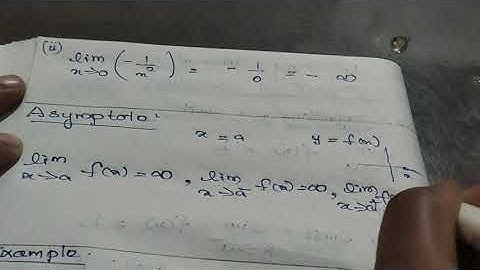 (ii) lim x→0 (-1/x²) = -1/0 = -∞
Asymptote:
x = a y = f(x)
lim x→a f(x) = ∞, lim x→a⁻ f(x) = ∞, lim x→a⁺ f(
Example.